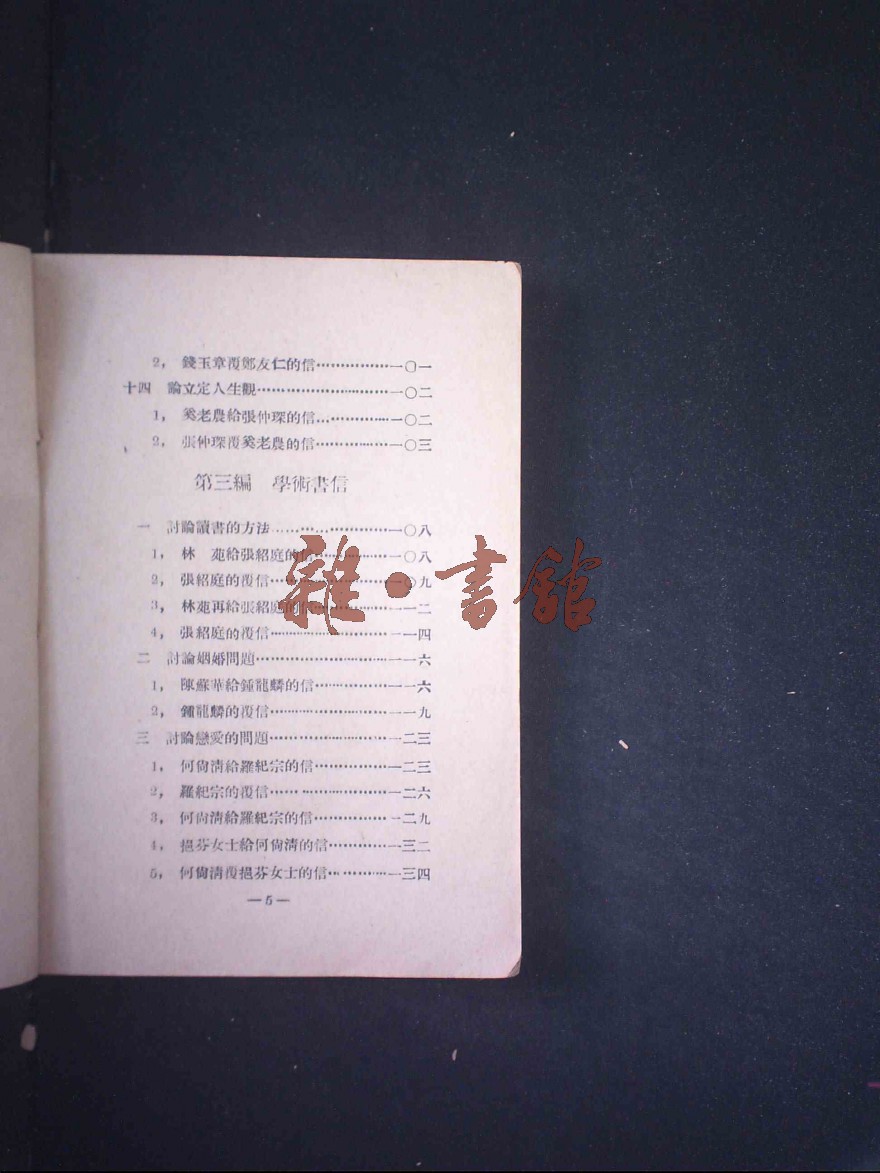 2， 錢玉章覆鄭友仁的信………………一〇一
十四 論立定人生觀………………………一〇二
1， 奚老農給張仲琛的信………………一〇二
2， 張仲琛覆奚老農的信………………一〇三
第三編 學術書信
一 討論讀書的方法………………………一〇八
1， 林 苑給張紹庭的信………………一〇八
2， 張紹庭的覆信………………………一〇九
3， 林苑再給張紹庭的信………………一一二
4， 張紹庭的覆信………………………一一四
二 討論姻婚問題…………………………一一六
1， 陳蘇華給鍾龍麟的信………………一一六
2， 鍾龍麟的覆信………………………一一九
三 討論戀愛的問題………………………一二三
1， 何尙淸給羅紀宗的信………………一二三
2， 羅紀宗的覆信………………………一二六
3， 何尙淸給羅紀宗的信………………一二九
4， 挹芬女士給何尙淸的信……………一三二
5， 何尙淸覆挹芬女士的信……………一三四
—5—
雜·書館